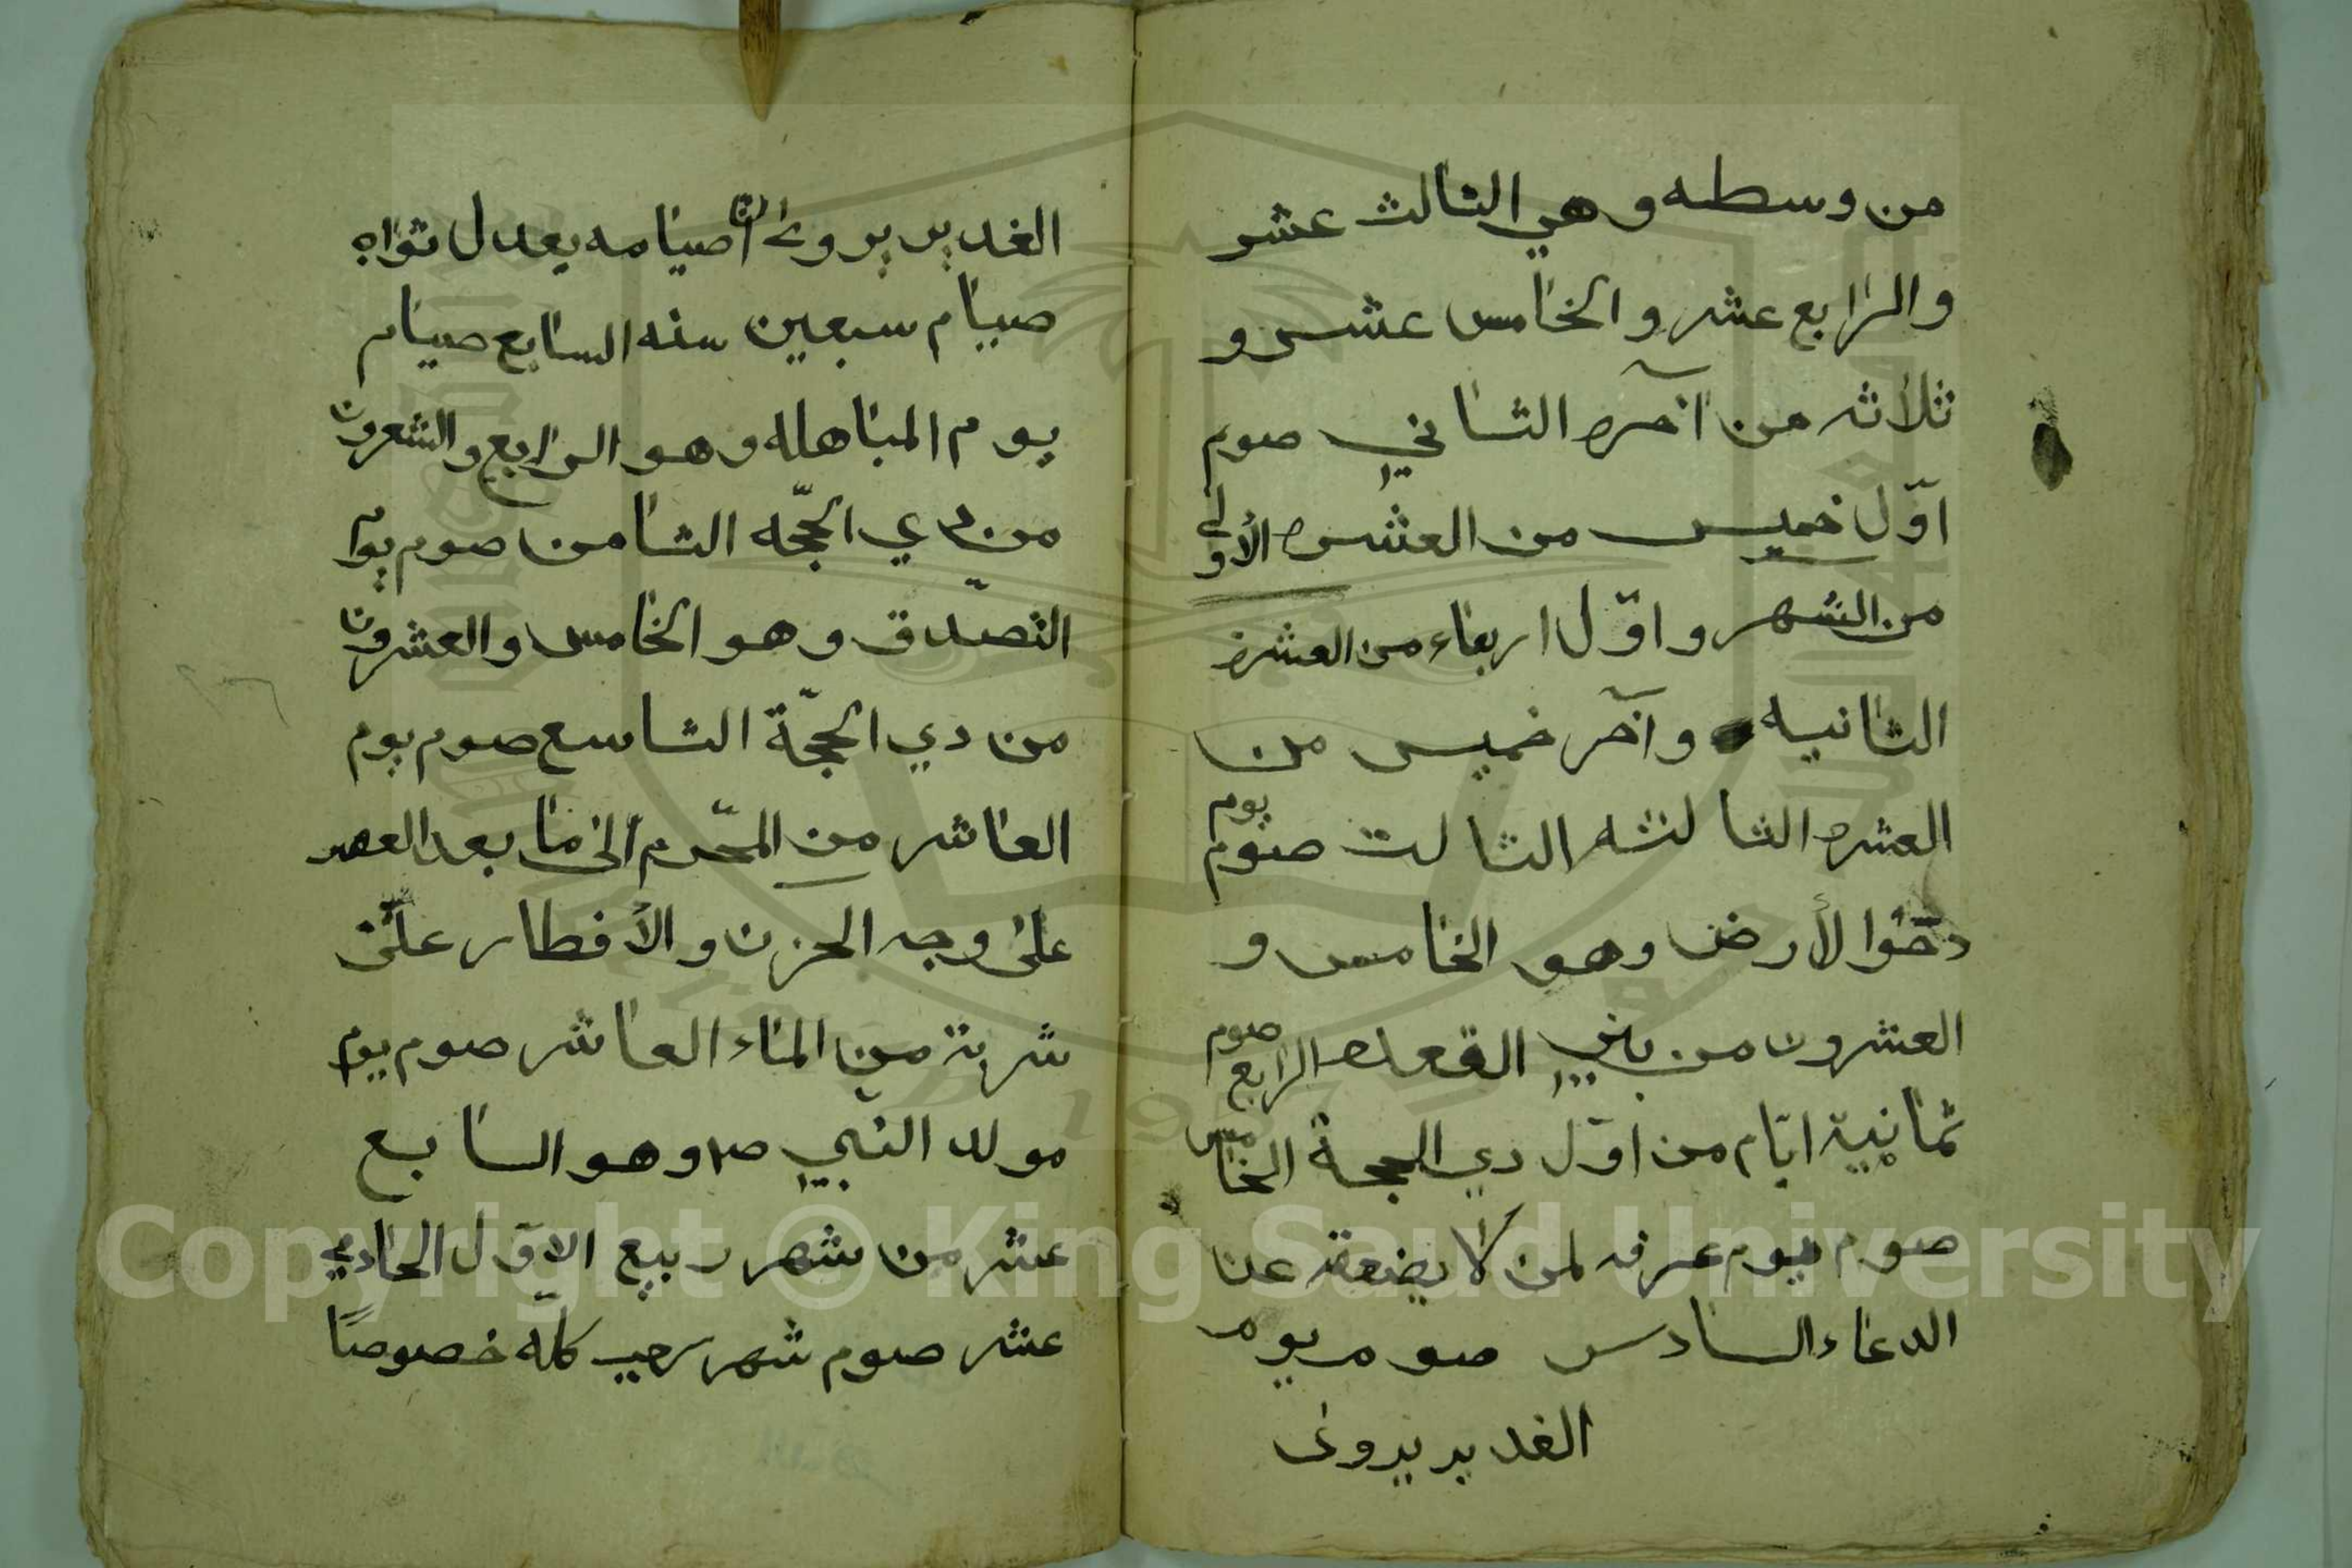 من وسطه وهي الثالث عشر
والرابع عشر والخامس عشر و
ثلاثه من آخره الثاني صوم
اوّل خميس من العشره الأولى
من الشهر واوّل اربعاء من العشرة
الثانيه وآخر خميس من
العشره الثالثه الثالث صوم يوم
دحو الأرض وهو الخامس و
العشرون من القعده الرابع صوم
ثمانية ايّام من اوّل دي الحجة الخامس
صوم يوم عرفه لمن لا يضعفه عن
الدعاء السادس صوم يوم
الغدير يروى
الغدير يروى انّ صيامه يعدل ثوابه
صيام سبعين سنه السابع صيام
يوم المباهله وهو الرابع والعشرون
من دي الحجّه الثامن صوم يوم
التصدّق وهو الخامس والعشرون
من دي الحجّة التاسع صوم يوم
العاشر من المحّرم الى ما بعد العصر
على وجه الحزن والأفطار على
شربة من الماء العاشر صوم يوم
مولد النبي ص وهو السابع
عشر من شهر ربيع الاوّل الحادي
عشر صوم شهر رجب كلّه خصوصًا
Copyright © King Saud University